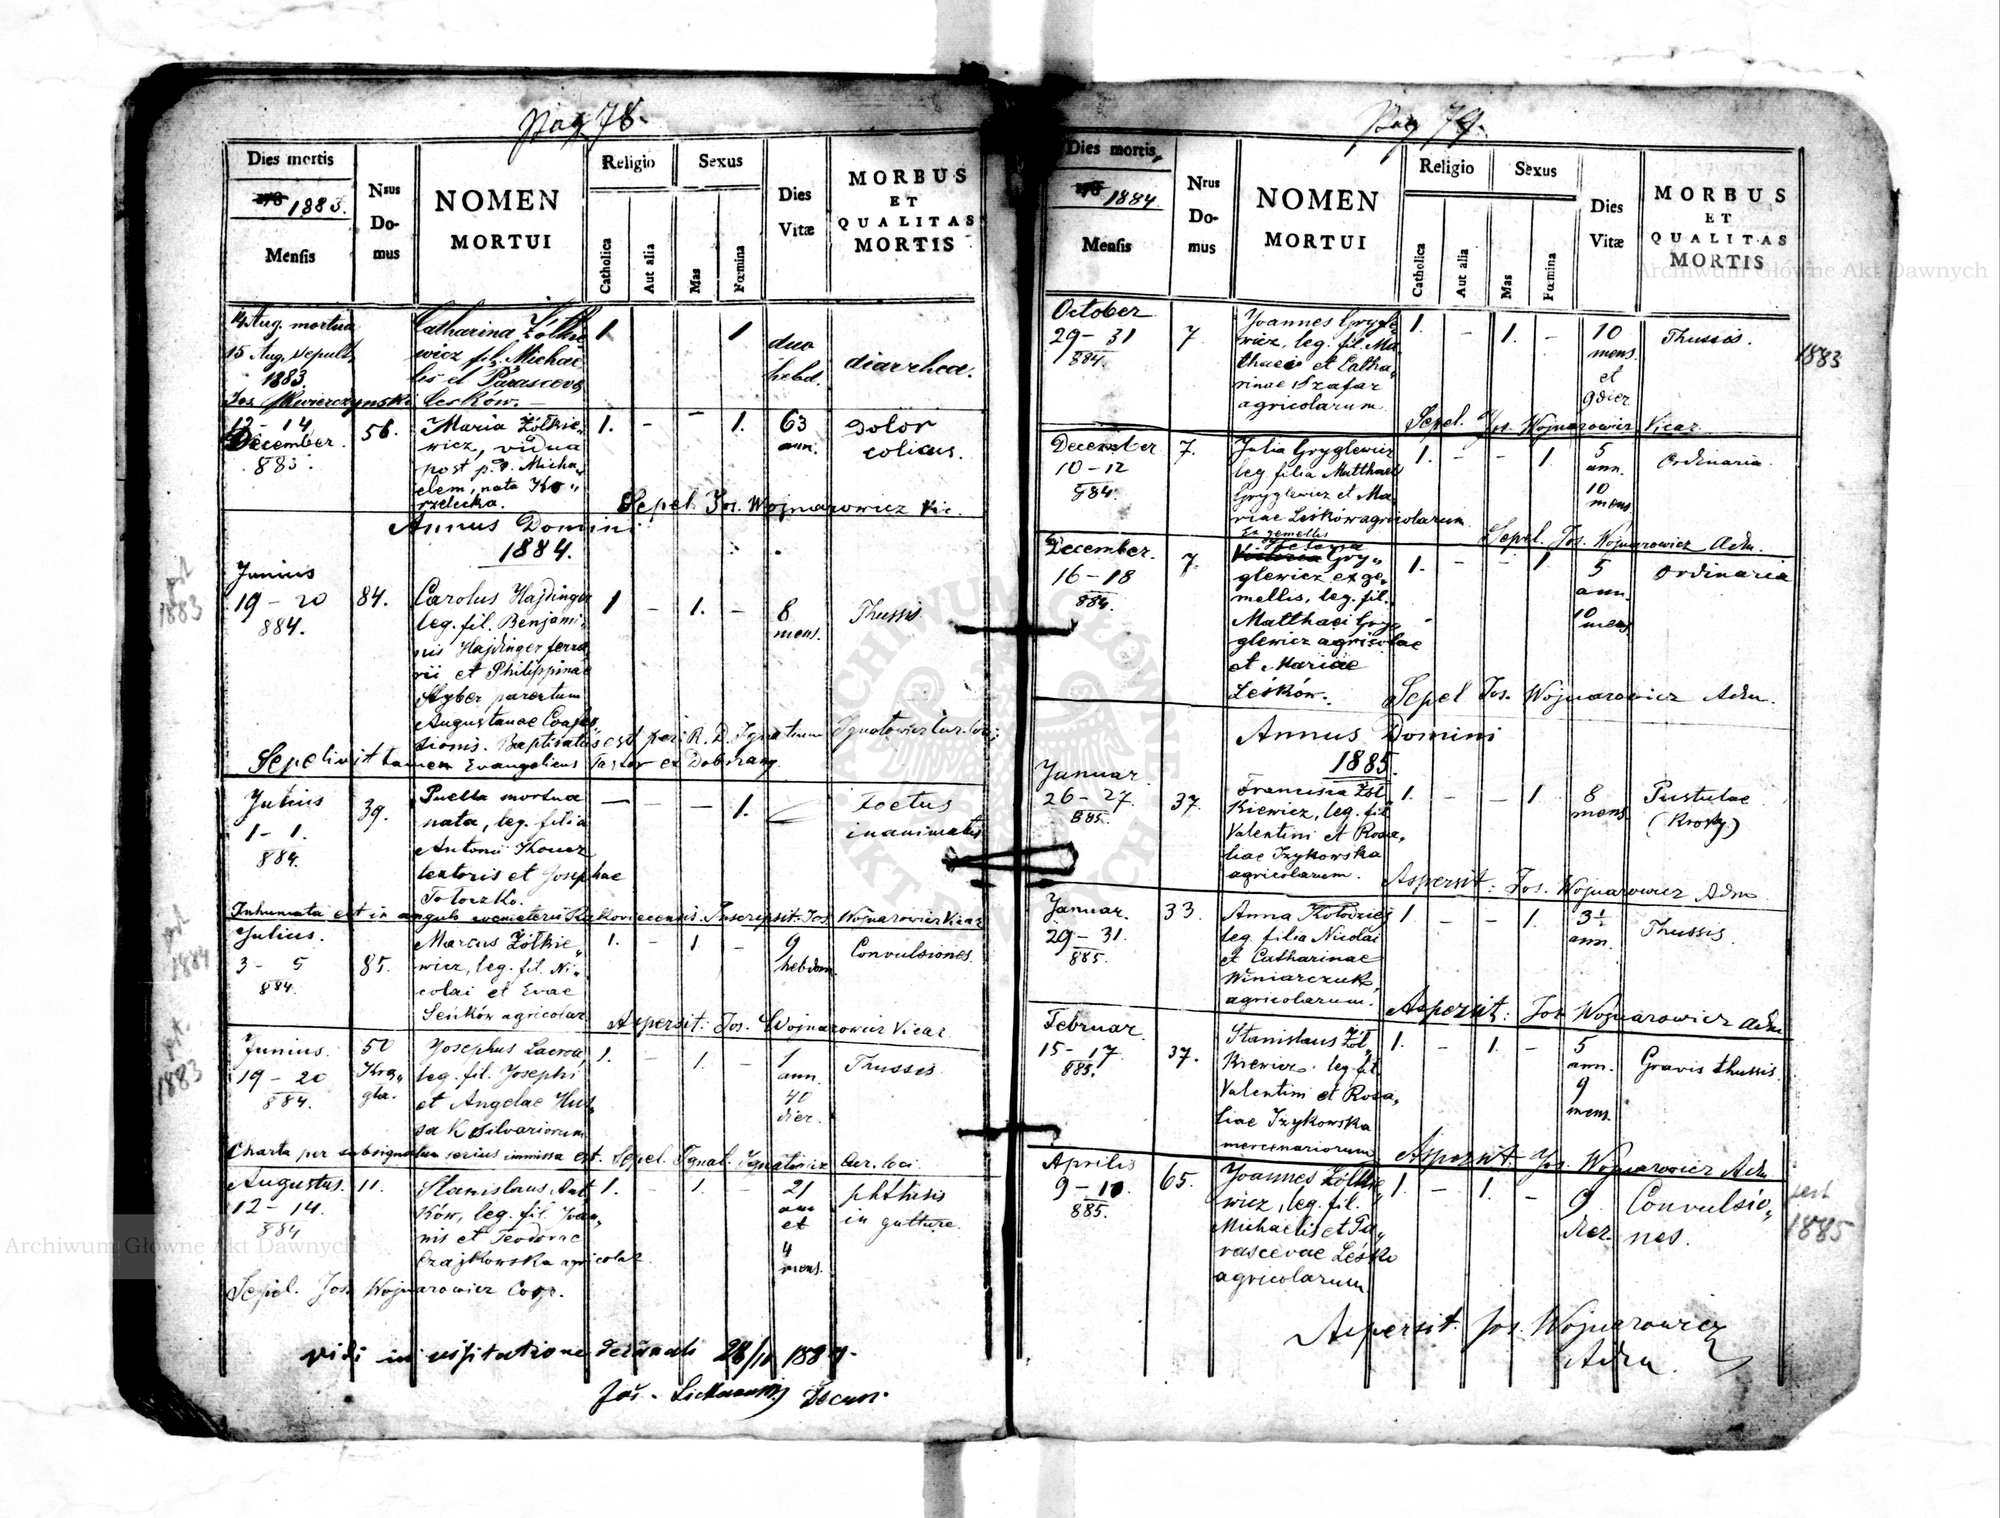 Pag 78.
Dies mortis
1883.
Mensis
Nrus
Do-
mus
NOMEN
MORTUI
Religio
Catholica
Aut alia
Sexus
Mas
Fœmina
Dies
Vitæ
MORBUS
ET
QUALITAS
MORTIS
14 Aug. mortua
15 Aug. sepulta
1883.
Catharina Żółkie
wicz fil. Michae
lis et Parasceva
Leśków.
1.
1
duo
hebd.
diarrhea.
12 - 14
December.
883.
56.
Maria Żółkie,
wicz, vidua
post p. d. Micha,
elem, nata Ko,,
rzelecka.
1.
-
-
1.
63
ann.
Dolor
colicus.
Sepel. Jos. Wojnarowicz Vic.
Annus Domini
1884.
Junius
19 - 20
884.
84.
Carolus Hajdinger
leg. fil. Benjami,
nis Hajdinger ferra
rii et Philippinae
Styber parentum
Augustanae Confes
sionis. Baptisatus est per R. D. Ignatium Ignatowicz Cur. loci;
1
-
1.
-
8
mens.
Thussis
Sepelivit tamen Evangelicus Pastor ex
Julius
1 - 1.
884.
39.
Puella mortua
nata, leg. filia
Antonii
textoris et Josephae
Totoczko.
—
—
—
1.
Foetus
inanimatus
Inhumata est in angulo coemeterii Inscripsit Jos Wojnarowicz Vicar
Julius.
3 - 5
884.
85.
Marcus Żółkie,,
wicz, leg. fil. Ni,,
colai et Evae
Seńków agricolar
1.
-
1
-
9
hebdom
Convulsiones.
Aspersit: Jos. Wojnarowicz Vicar
Junius.
19 - 20
884.
50
Josephus
leg. fil. Josephi
et Angelae Hus,
sak silvariorum
1.
-
1.
-
1
ann.
40
dier.
Thussis
Charta per subsignatum serius immissa est. Sepel. Ignat. Ignatowicz Cur. loci.
Augustus.
12 - 14.
884
11.
Stanislaus Ant
ków, leg. fil. Joan,
nis et Teodorae
Czajkowska agricolar
1.
-
1.
-
21
ann
et
4
mens.
phthisis
in gutture.
Sepel. Jos. Wojnarowicz Coop.
Vidi in visitatione decanali 28/11 1884.
Pag 79.
Dies mortis
1884.
Mensis
Nrus
Do-
mus
NOMEN
MORTUI
Religio
Catholica
Aut alia
Sexus
Mas
Fœmina
Dies
Vitæ
MORBUS
ET
QUALITAS
MORTIS
October
29 - 31
884.
7
Joannes Grygle,
wicz, leg. fil. Ma,
thaei et Catha,
rinae Szafar
agricolarum
1.
-
1.
-
10
mens.
et
9 dier
Thussis.
1883
Sepel. Jos. Wojnarowicz Vicar
December
10 - 12
884.
7.
Julia Gryglewicz
leg filia Matthaei
Gryglewicz et Ma
riae Leśków agricolarum
1.
-
-
1.
5
ann.
10
mens
Ordinaria.
Sepel. Jos. Wojnarowicz Adm.
December.
16 - 18
884.
7.
Ex gemellis
Gry,,
glewicz ex ge,
mellis, leg. fil.
Matthaei Gry,
glewicz agricolae
et Mariae
Leśków.
1.
-
-
1
5
ann.
10
mens
Ordinaria
Sepel Jos. Wojnarowicz Adm.
Annus Domini
1885.
Januar
26 - 27.
885.
37.
Francisca Żół
kiewicz, leg. fil
Valentini et Rosa,
liae Izykowska
agricolarum.
1.
-
-
1.
8
mens
Pustulae
(Krosty.)
Aspersit: Jos. Wojnarowicz Adm
Januar.
29 - 31.
885.
33.
Anna Kołodziej
leg. filia Nicolai
et Catharinae
Winiarczuk,
agricolarum.
1.
-
-
1.
3½
ann.
Thussis.
Aspersit: Jos Wojnarowicz Adm
Februar
15 - 17.
885.
37.
Stanislaus Żół,
kiewicz. leg. fil
Valentini et Rosa,
liae Izykowska
mercenariorum
1.
-
1.
-
5
ann.
9
mens.
Gravis thussis.
Aspersit. Jos. Wojnarowicz Adm
Aprilis
9 - 10.
885.
65.
Joannes Żółkie,
wicz, leg. fil.
Michaelis et Pa,
rascevae Leśko
agricolarum
1.
-
1.
-
9
dier.
Convulsio,,
nes.
1885
Aspersit. Jos. Wojnarowicz
Adm.
1883
1884
1883
Archiwum Główne Akt Dawnych
Archiwum Główne Akt Dawnych
ARCHIWUM GŁÓWNE AKT DAWNYCH